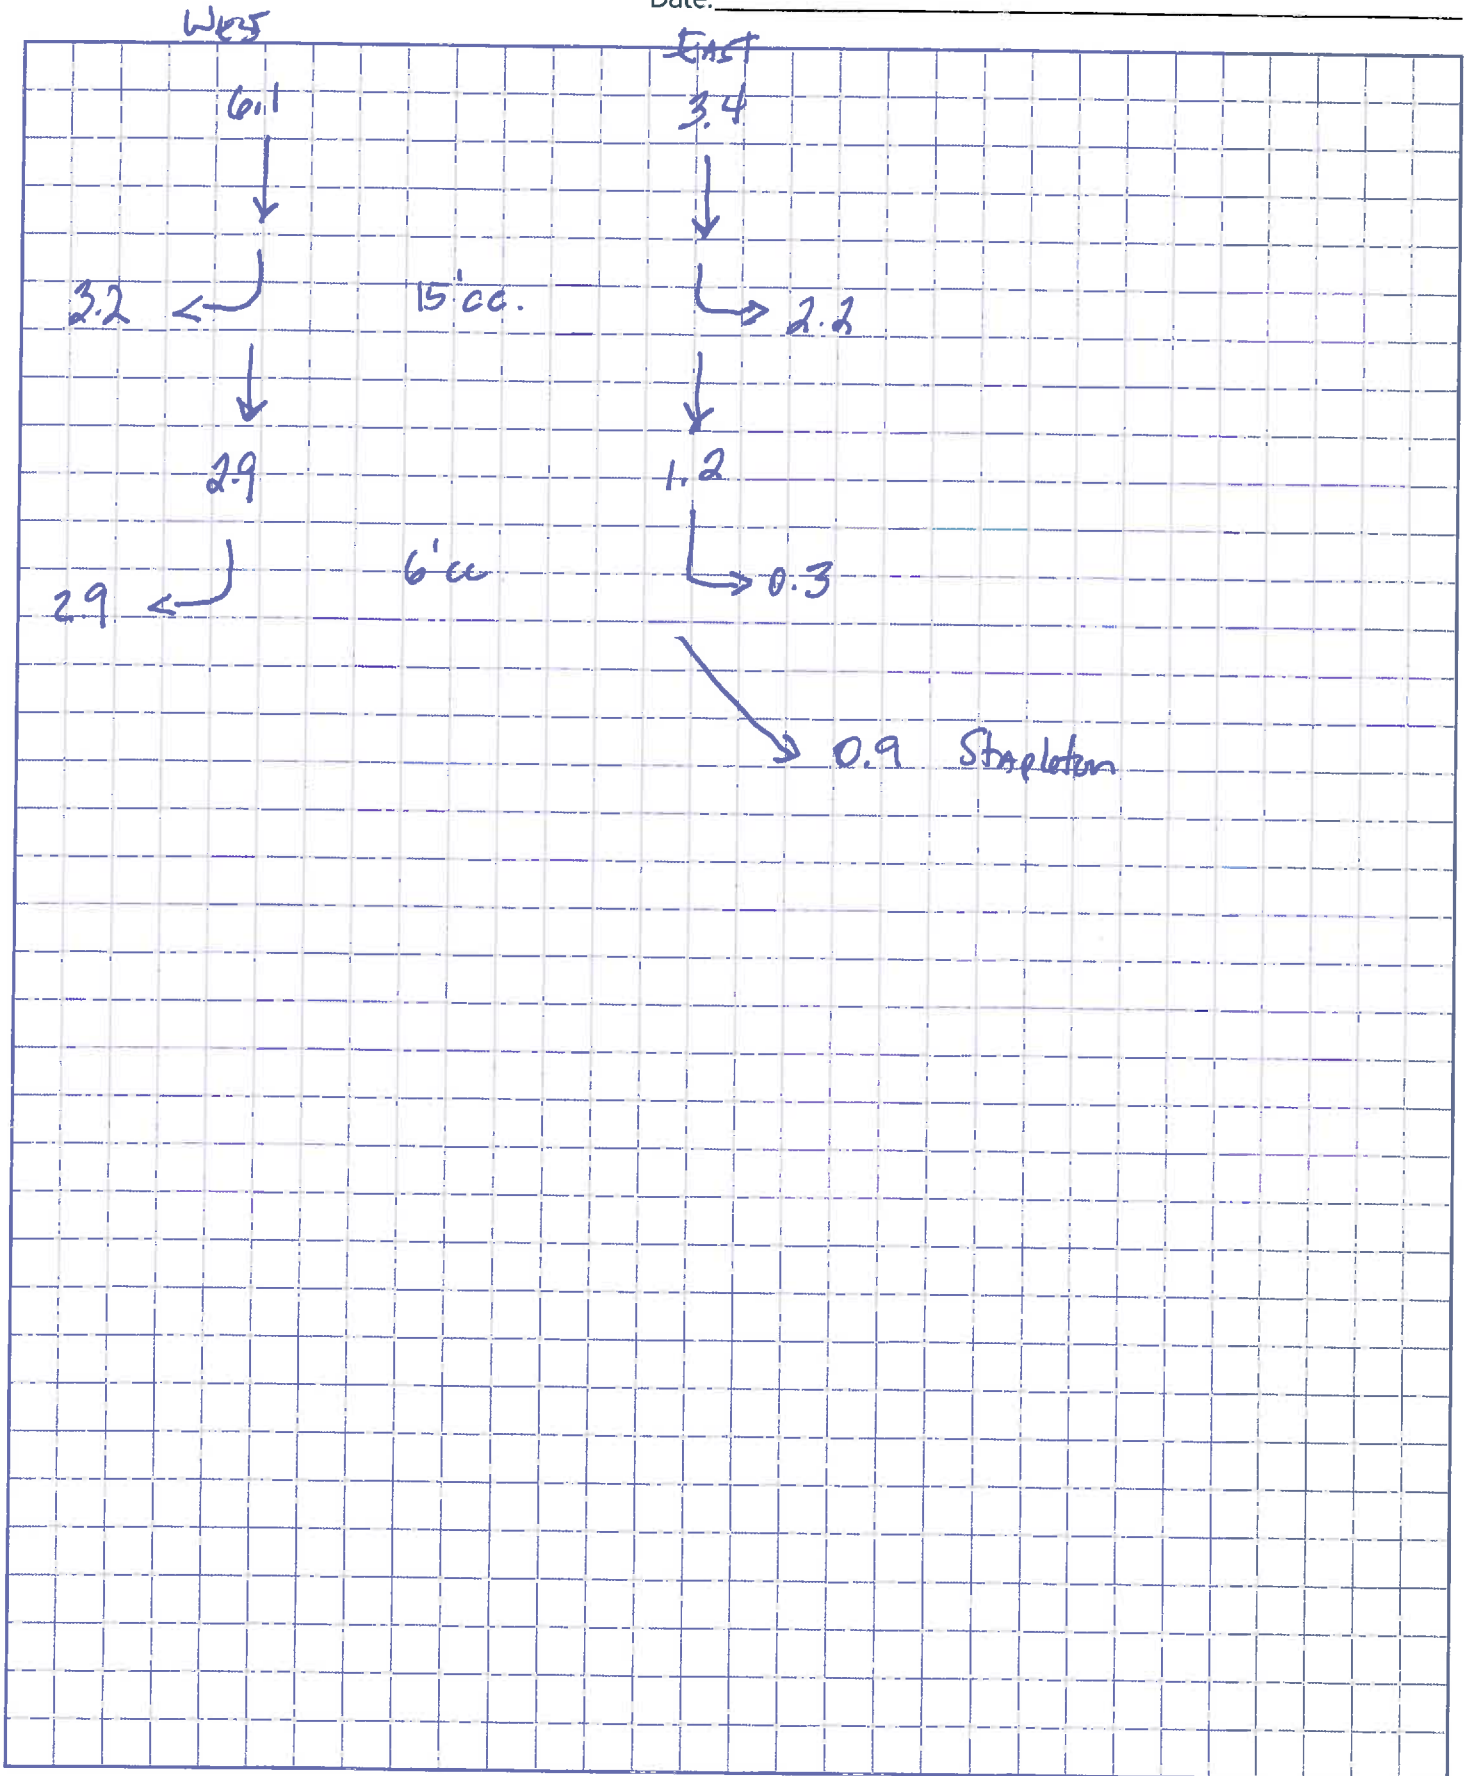 Date:
West EAST
6.1 3.4
3.2 15' cc. 2.2
2.9 1.2
2.9 6' cc 0.3
0.9 Stapleton